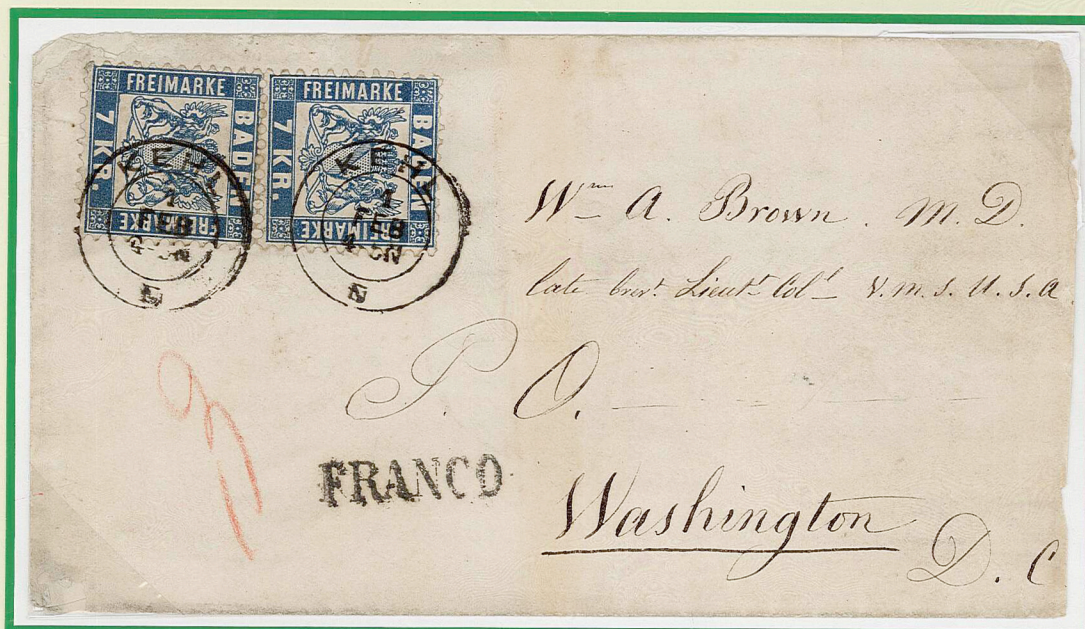 FREIMARKE
BADEN
7 KR.
FREIMARKE
FREIMARKE
BADEN
7 KR.
FREIMARKE
KEHL
1
FEB
KEHL
1
FEB
Wm A. Brown. M. D.
late brvt. Lieut. Col. V. M. S. U. S. A.
P. O.
FRANCO
Washington
D. C